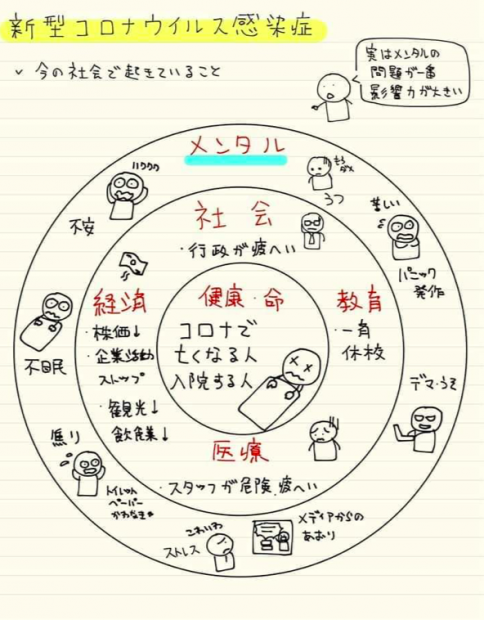 新型コロナウイルス感染症
✓ 今の社会で起きていること
実はメンタルの
問題が一番
影響力が大きい
メンタル
ハワワワ
不安
もう
ダメ
うつ
苦しい
パニック
発作
社会
・行政が疲へい
経済
・株価↓
・企業活動
ストップ
・観光↓
飲食業↓
健康・命
コロナで
亡くなる人
入院する人
教育
・一斉
休校
不眠
デマ・うそ
医療
・スタッフが危険、疲へい
焦り
トイレット
ペーパー
かわなきゃ
こわいわ
ストレス
メディアからの
あおり